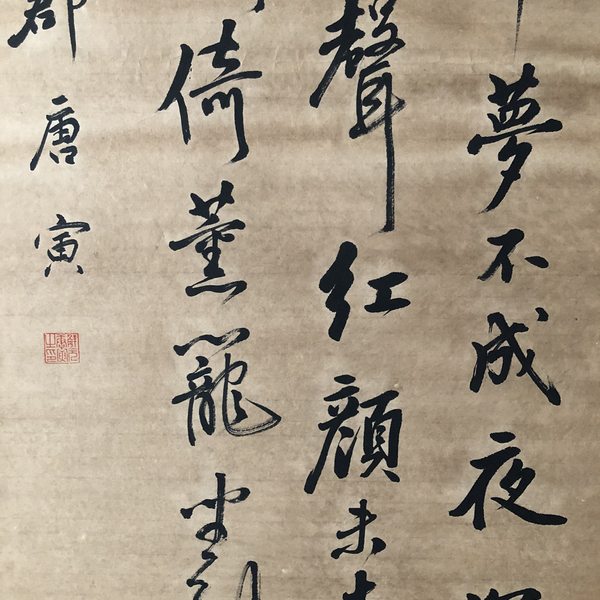 夢不成夜深
聲紅顏未老
倚薰籠坐到
郡唐寅